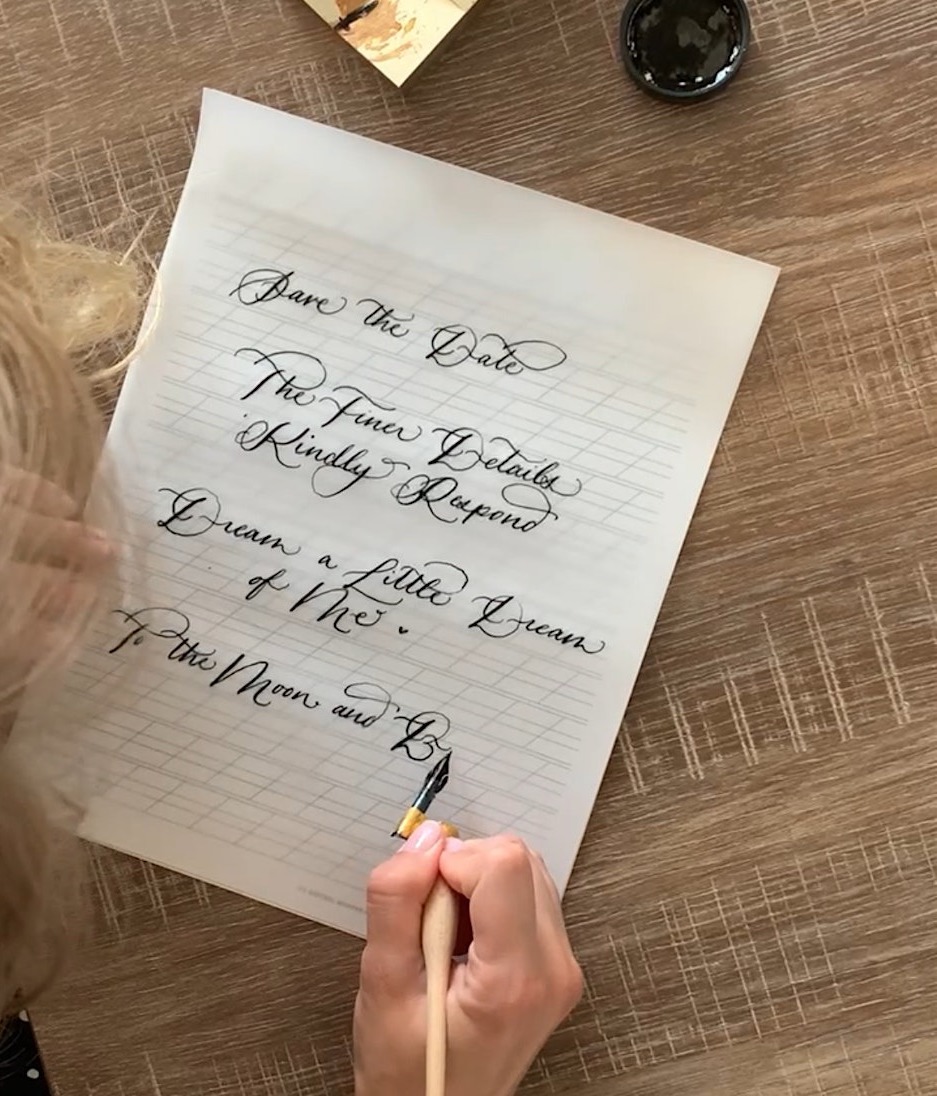 Save the Date
The Finer Details
Kindly Respond
Dream a Little Dream
of Me
To the Moon and B